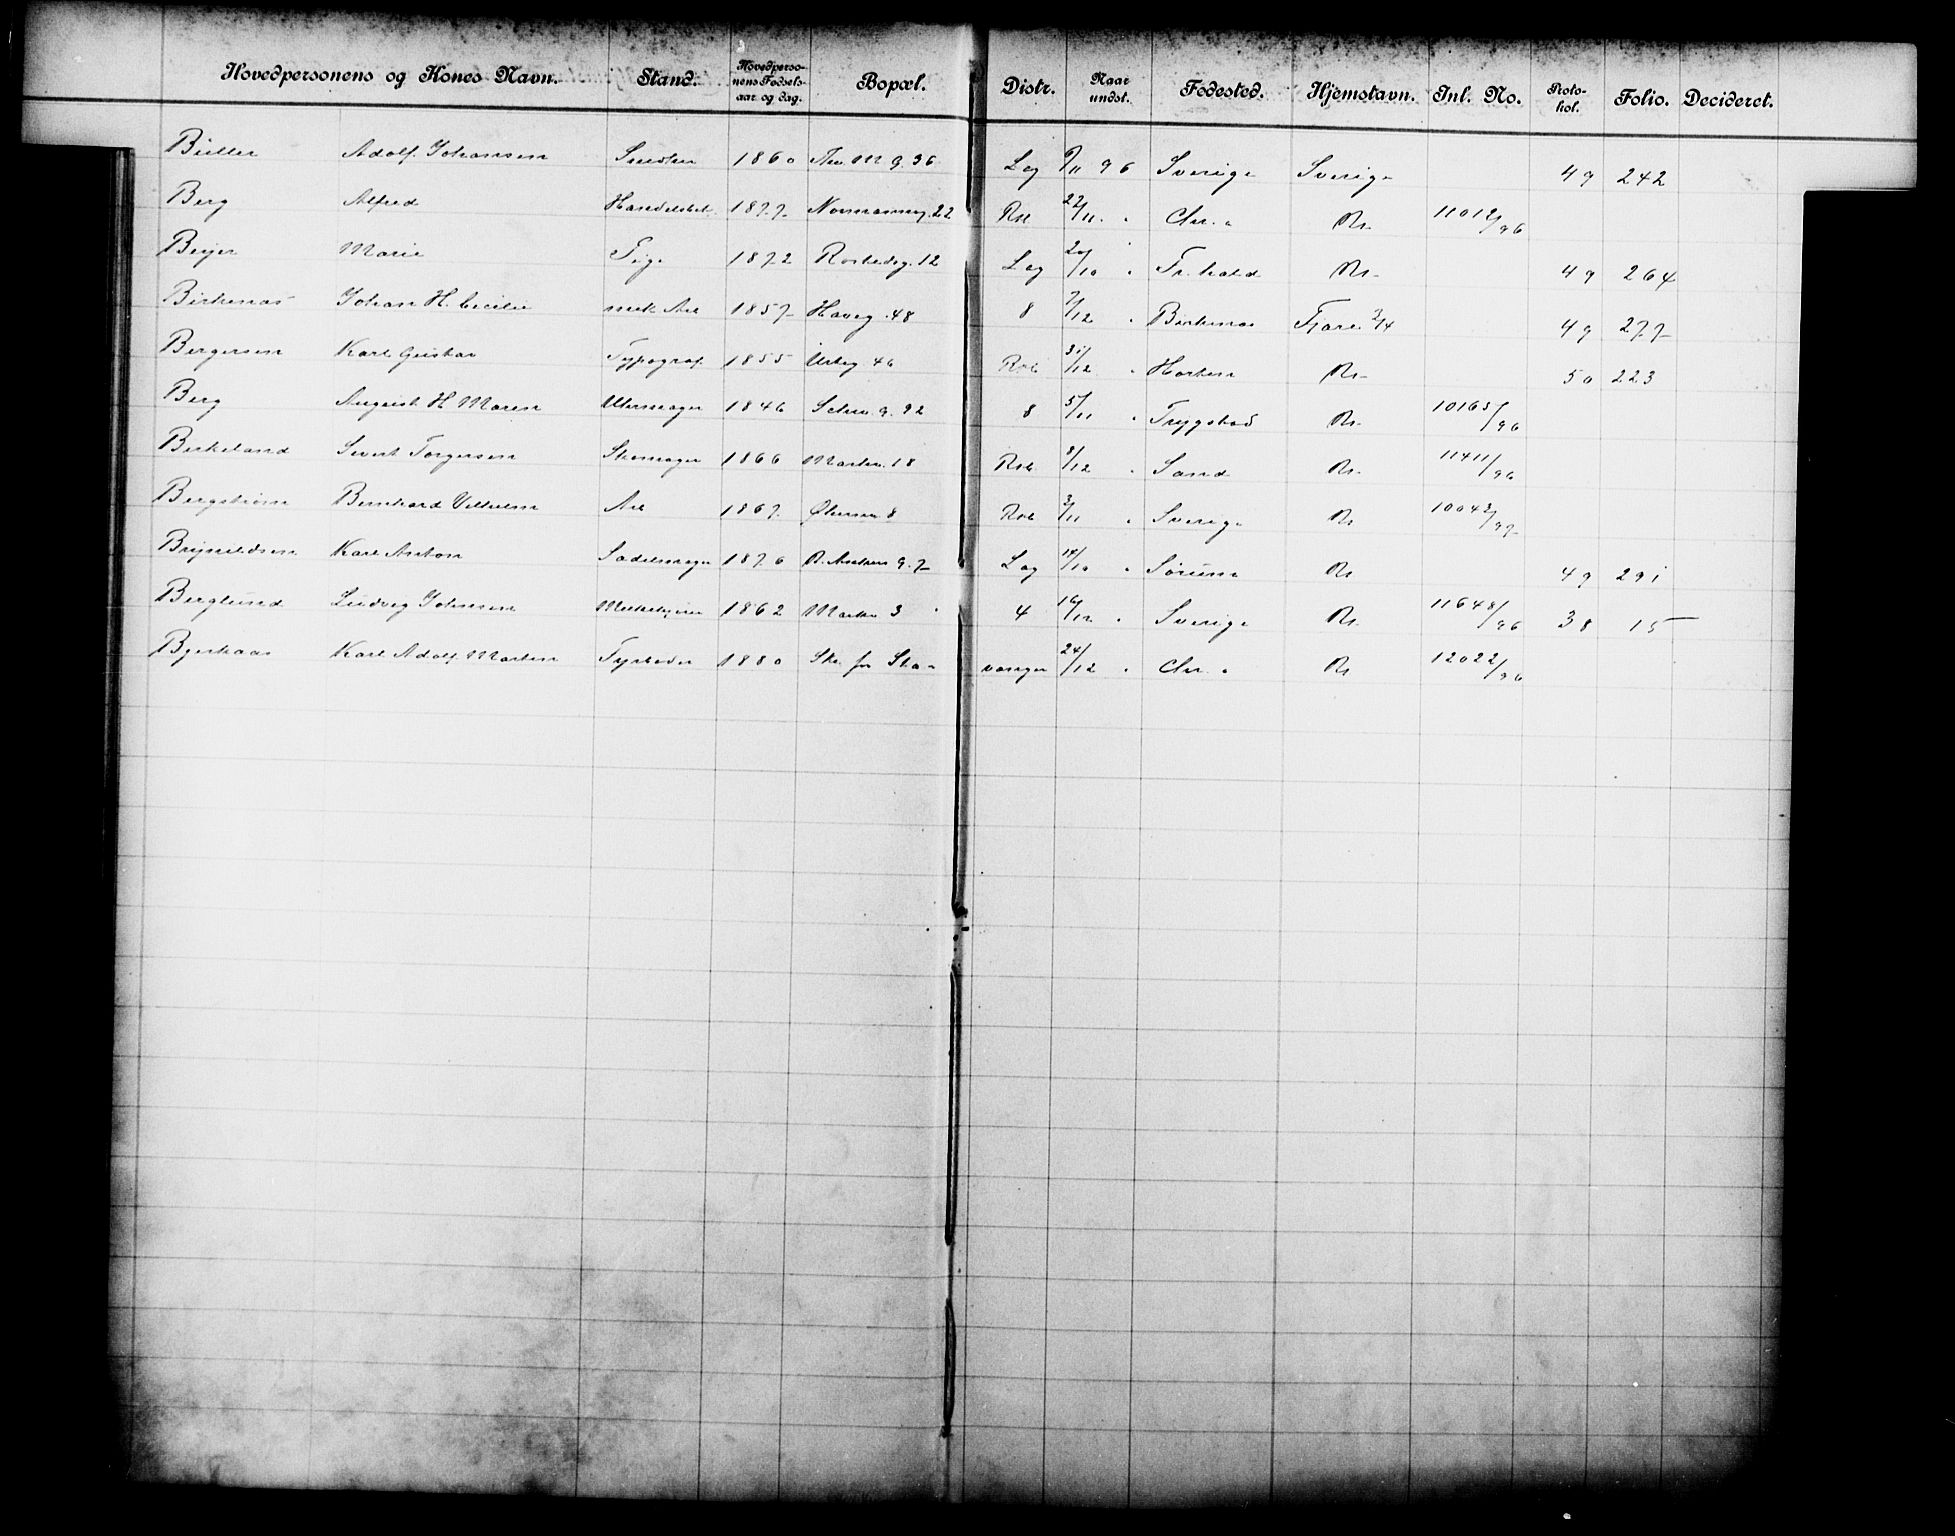 Hovedpersonens og Kones Navn. Stand. Hovedpersonens Fødselsaar og dag. Bopæl. Distr. Naar undst. Fødested. Hjemstavn. Inl. No. Protokol. Folio. Decideret.
Büller Adolf Johansen Snedker 1860 Thv M g. 36 Lag 9/11 96 Sverige Sverige 49 242
Berg Alfred Handelsbet. 1877 Normannsg. 22 22/11 " Chr. a 11012/96
Beyer Marie Pige 1872 12 Lag 20/10 " Fr. hald 49 264
Birkenæs Johan H. Cecilie mek. Arb 1857 Haveg. 48 8 7/12 " Birkenæs Fjære 2/4 49 277
Bergersen Karl Gustav Typograf 1855 Urteg 46 31/12 " Horten 50 223
Berg August H. Maren Uhrmager 1846 Schw. g. 92 8 5/11 " Trygstad 10165/96
Birkeland Sivert Torgersen Skomager 1866 Markv. 18 8/12 " Sand 11411/96
Bergstrøm Bernhard Vilhelm Arb 1867 8 3/11 " Sverige 10042/97
Brynildsen Karl Anton Sadelmager 1876 g. 7 Lag 14/10 " Sørum 49 291
Berglund Ludvig Johnsen 1862 Markv 3 4 16/12 " Sverige 11648/96 38 15
Bjerkaas Karl Adolf Marten Fyrbøder 1880 Sk. for Sta- vanger 24/12 " Chr. a 12022/96